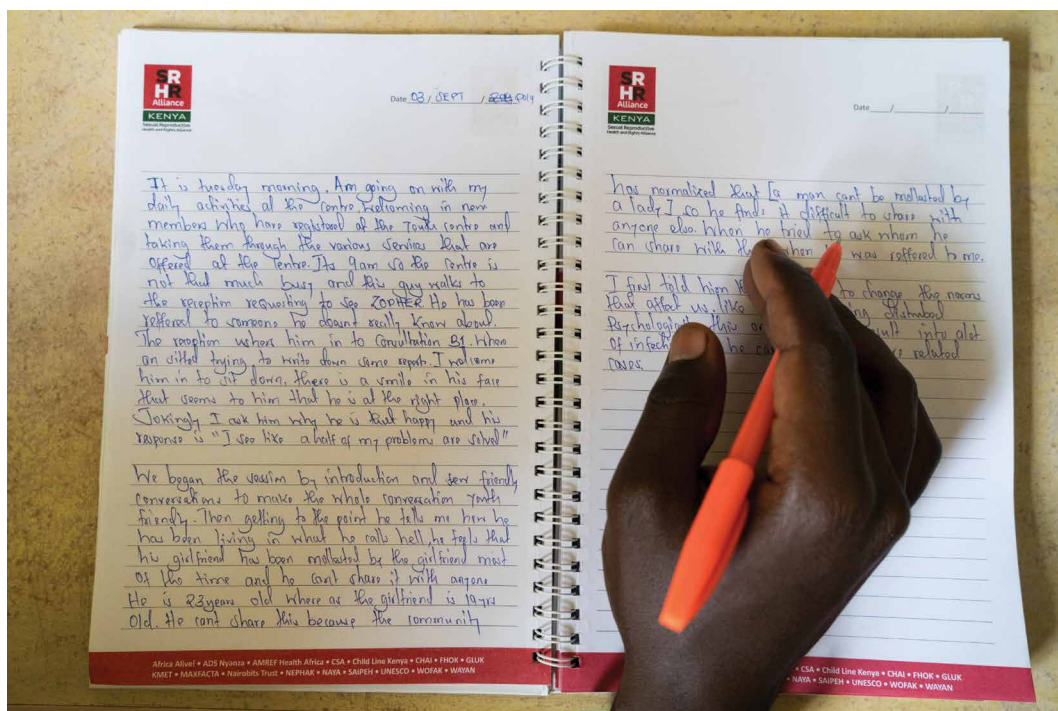 SR
HR
Alliance
KENYA
Sexual Reproductive
Health and Rights Alliance
Date 03 / SEPT / 2019
It is tuesday morning. Am going on with my
daily activities at the centre welcoming in new
members who have registered at the Youth centre and
taking them through the various services that are
offered at the Centre. Its 9am so the centre is
not that much busy and this guy walks to
the reception requesting to see ZOPHER. He has been
reffered to someone he doesnt really know about.
The reception ushers him in to Consultation B1. When
am sitted trying to write down some report. I welcome
him in to sit down, there is a smile in his face
that seems to him that he is at the right place.
Jokingly I ask him why he is that happy and his
response is "I see like a half of my problems are solved"
We began the session by introduction and few friendly
conversations to make the whole conversation youth
friendly. Then getting to the point he tells me how he
has been living in what he calls hell, he feels that
his girlfriend has been mollasted by the girlfriend most
of the time and he cant share it with anyone
He is 23 years old where as the girlfriend is 19yrs
old. He cant share this because the community
Africa Alive! • ADS Nyanza • AMREF Health Africa • CSA • Child Line Kenya • CHAI • FHOK • GLUK
KMET • MAXFACTA • Nairobits Trust • NEPHAK • NAYA • SAIPEH • UNESCO • WOFAK • WAYAN
SR
HR
Alliance
KENYA
Sexual Reproductive
Health and Rights Alliance
Date / /
has normalized that [a man cant be mollasted by
a lady] so he finds it difficult to share with
anyone else. When he tried to ask whom he
can share with when was reffered to me.
I first told him to change the norms
that affect us, like disturbed
Psychologically this result into alot
of he related
cases.
• CSA • Child Line Kenya • CHAI • FHOK • GLUK
• NAYA • SAIPEH • UNESCO • WOFAK • WAYAN